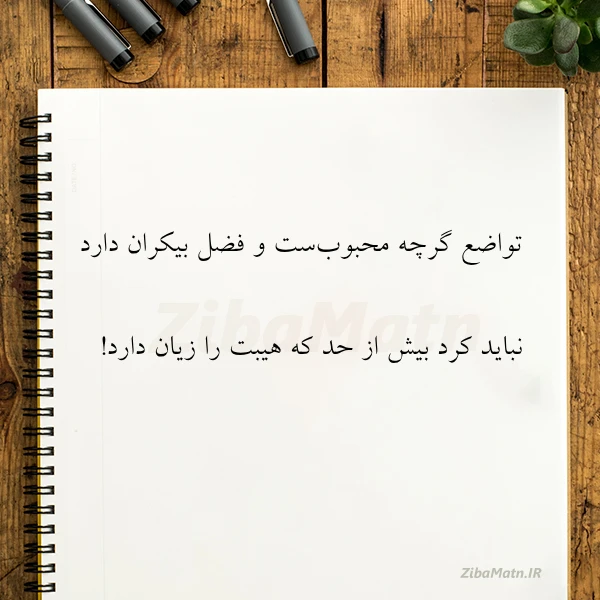 تواضع گرچه محبوب‌ست و فضل بیکران دارد
ZibaMatn
نباید کرد بیش از حد که هیبت را زیان دارد!
ZibaMatn.IR